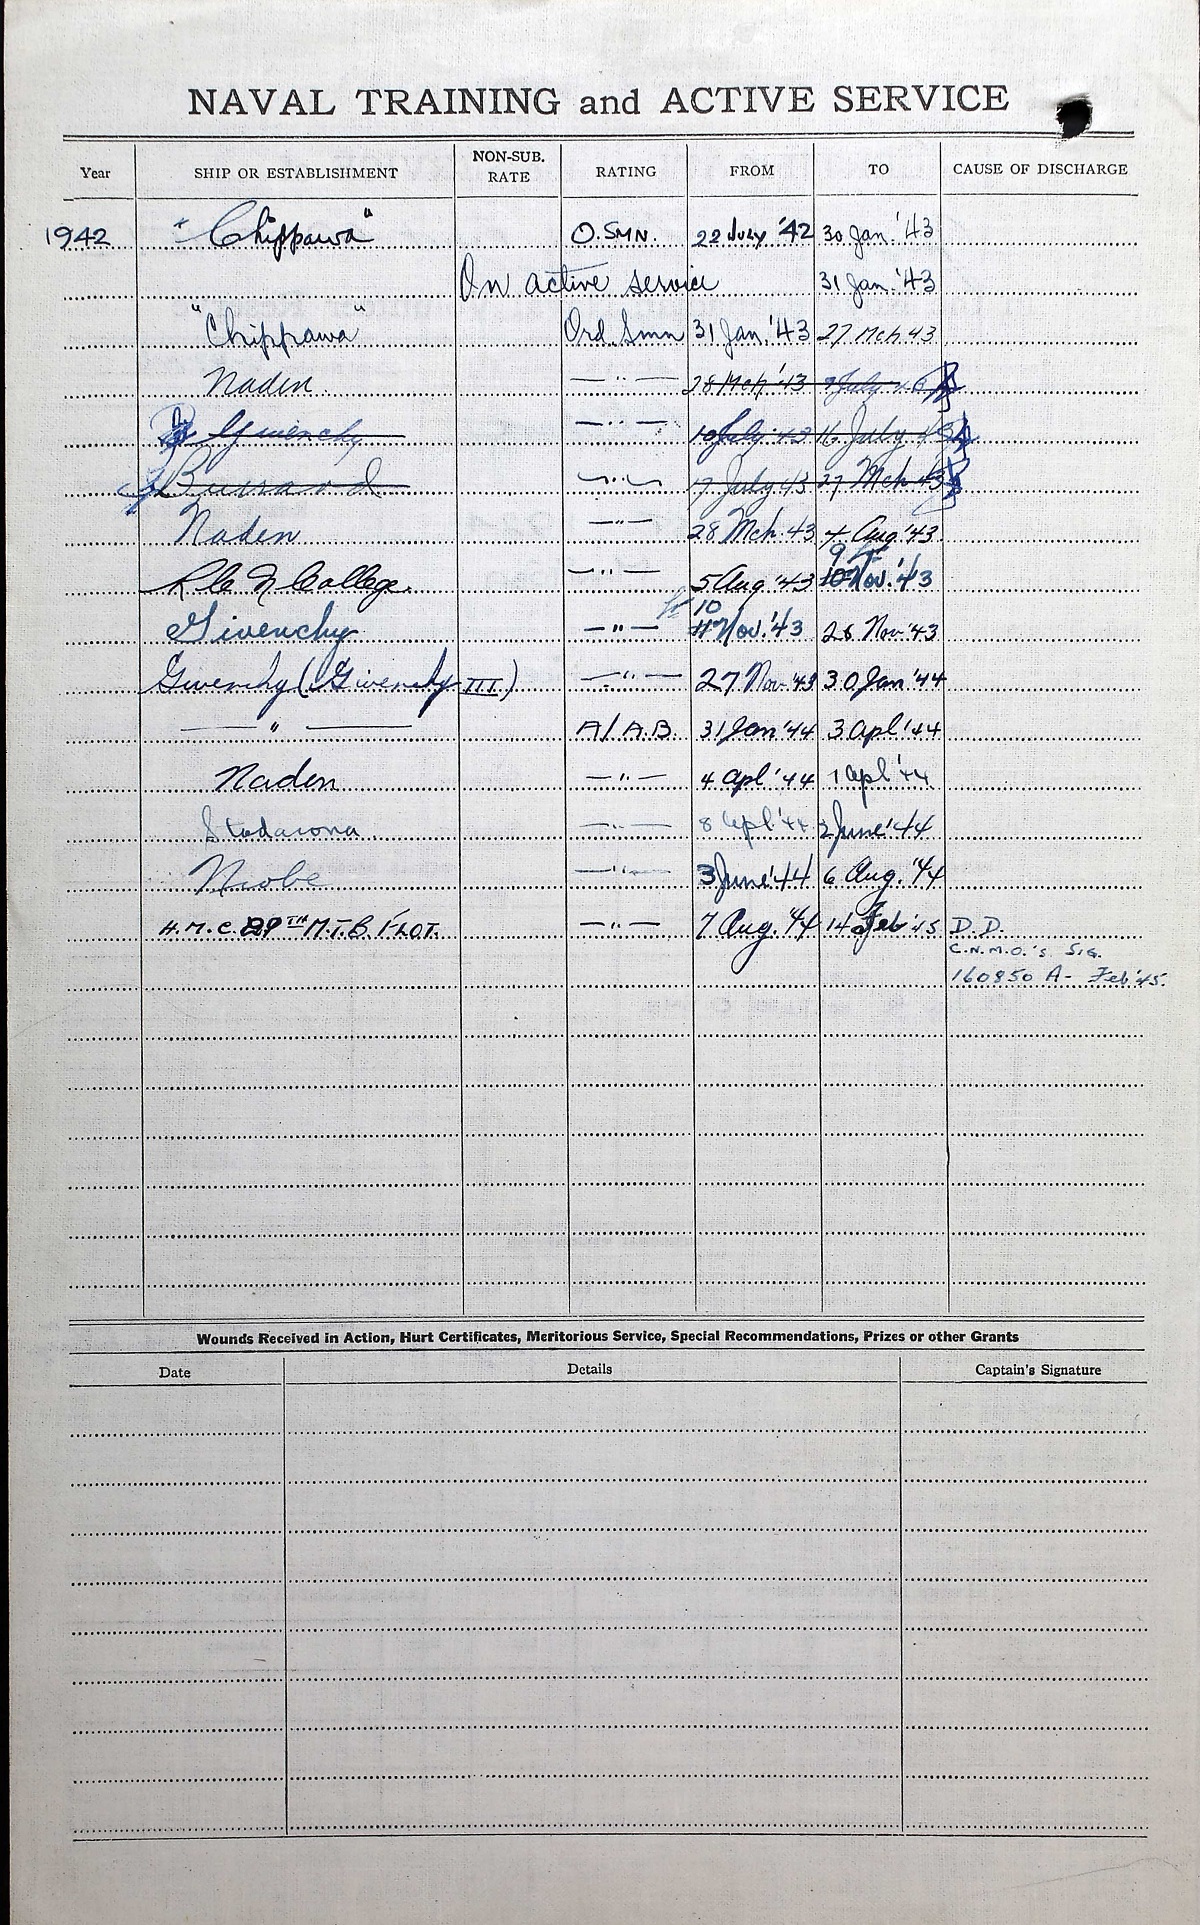 NAVAL TRAINING and ACTIVE SERVICE
Year SHIP OR ESTABLISHMENT NON-SUB. RATE RATING FROM TO CAUSE OF DISCHARGE
1942 "Chippawa" O.SMN. 22 July '42 30 Jan. '43
On active service 31 Jan. '43
"Chippawa" Ord. Smn 31 Jan. '43 27 Mch 43
Naden. — " — 28 Mch '43 9 July
Givenchy — " — 10 July 43 16 July 43
Burrard — " — 17 July 43 27 Mch 43
Naden — " — 28 Mch. 43 4 Aug '43
9
R.C.N. College. — " — 5 Aug '43 10 Nov. '43
10
Givenchy — " — 11 Nov. '43 26 Nov '43
Givenchy (Givenchy III) — " — 27 Nov '43 30 Jan '44
— " — A/A.B. 31 Jan '44 3 Apl '44
Naden — " — 4 Apl '44 Apl '44
Stadacona — " — 8 Apl '44 2 June '44
Niobe — " — 3 June '44 6 Aug. '44
H.M.C. 29TH M.T.B. FLOT. — " — 7 Aug. '44 14 Feb '45 D.D.
C.N.M.O.'s SIG.
160850 A- Feb '45.
Wounds Received in Action, Hurt Certificates, Meritorious Service, Special Recommendations, Prizes or other Grants
Date Details Captain's Signature